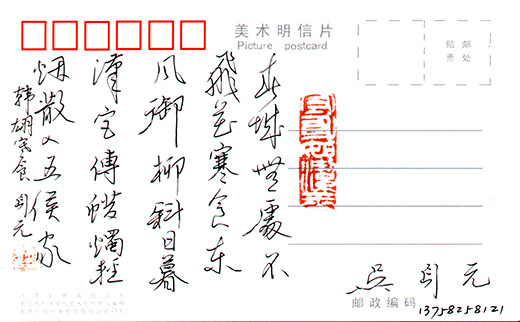 美术明信片
Picture postcard
贴 邮
票 处
春城無處不
飛花寒食东
风御柳斜日暮
漢宫傳蜡燭轻
烟散入五侯家
韩翃寒食
吴 元
邮政编码
13758258121